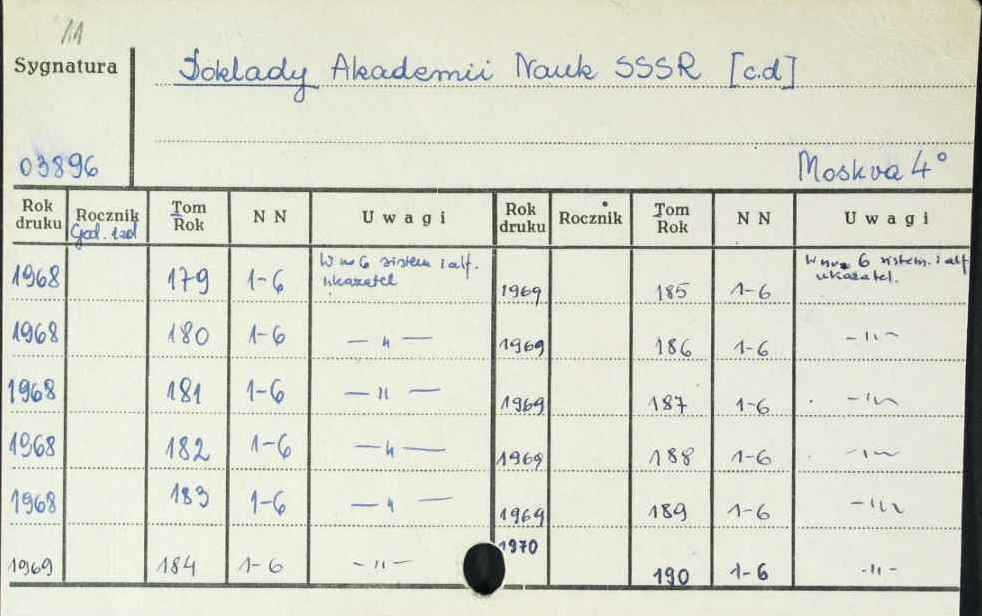 11
Sygnatura
Doklady Akademii Nauk SSSR [c.d]
03896
Moskva 4°
Rok druku Rocznik God. izd Tom Rok N N Uwagi Rok druku Rocznik Tom Rok N N Uwagi
1968 179 1-6 W nr 6 sistem i alf. ukazatel 1969 185 1-6 W nr 6 sistem. i alf ukazatel.
1968 180 1-6 — " — 1969 186 1-6 — " —
1968 181 1-6 — " — 1969 187 1-6 — " —
1968 182 1-6 — " — 1969 188 1-6 — " —
1968 183 1-6 — " — 1969 189 1-6 — " —
1969 184 1-6 - " - 1970 190 1-6 - " -